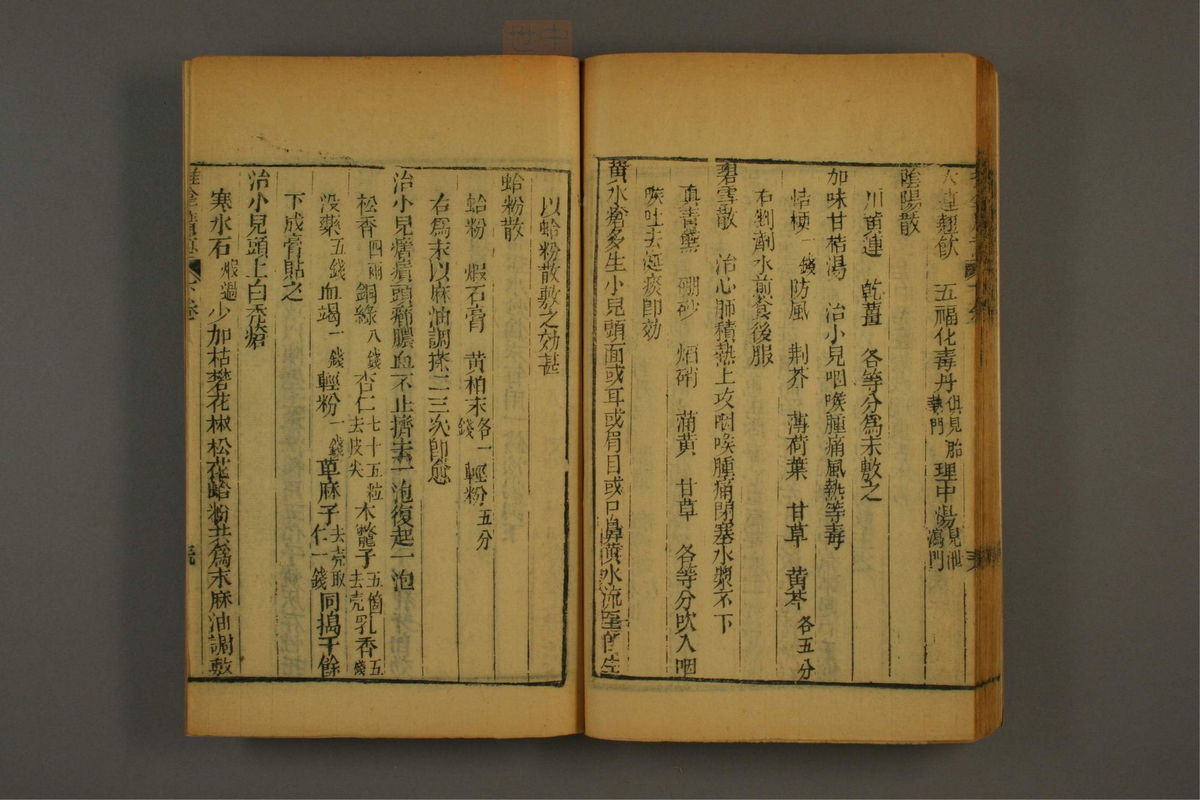 大連翹飲 五福化毒丹俱見胎熱門 理中湯見泄瀉門
陰陽散
川黄連 乾薑 各等分爲末敷之
加味甘桔湯 治小兒咽喉腫痛風熱等毒
桔梗一錢 防風 荆芥 薄荷葉 甘草 黄芩各五分
右剉劑水煎食後服
碧雪散 治心肺積熱上攻咽喉腫痛閉塞水漿不下
真青黛 硼砂 焰硝 蒲黄 甘草 各等分吹入咽
喉吐去涎痰即効
黄水瘡多生小兒頭面或耳或眉目或口鼻黄水流至即生
以蛤粉散敷之効甚
蛤粉散
蛤粉 煆石膏 黄柏末各一錢 輕粉五分
右爲末以麻油調搽二三次即愈
治小兒癤瘡頭痛膿血不止擠去一泡復起一泡
松香四兩 銅綠八錢 杏仁七十五粒去皮尖 木鱉子五箇去売 乳香五錢
没藥五錢 血竭一錢 輕粉一錢 草麻子去売取仁一錢 同搗千餘
下成膏貼之
治小兒頭上白秃瘡
寒水石煆過 少加枯礬花椒松花蛤粉共爲末麻油調敷